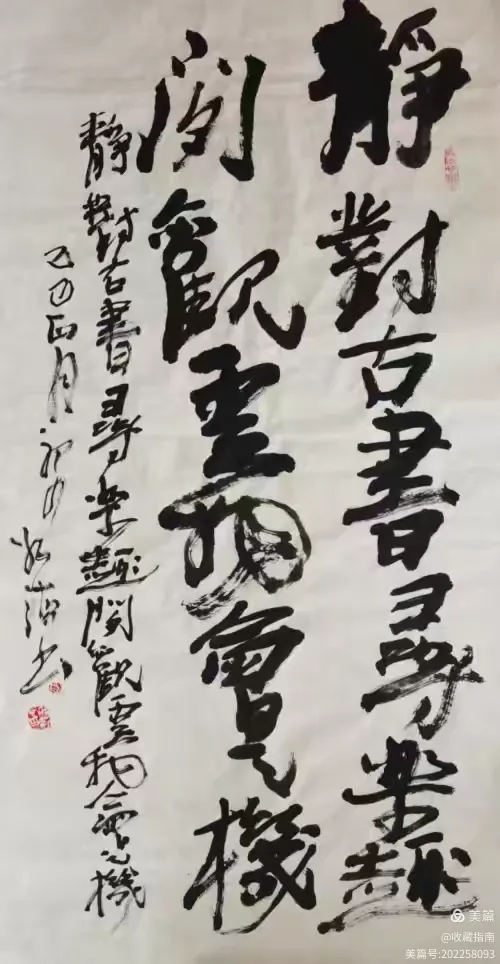 靜對古書尋樂趣
閑觀雲物會天機
靜對古書尋樂趣閑觀雲物會天機
乙巳正月初九
書
美篇
@收藏指南
美篇号:202258093